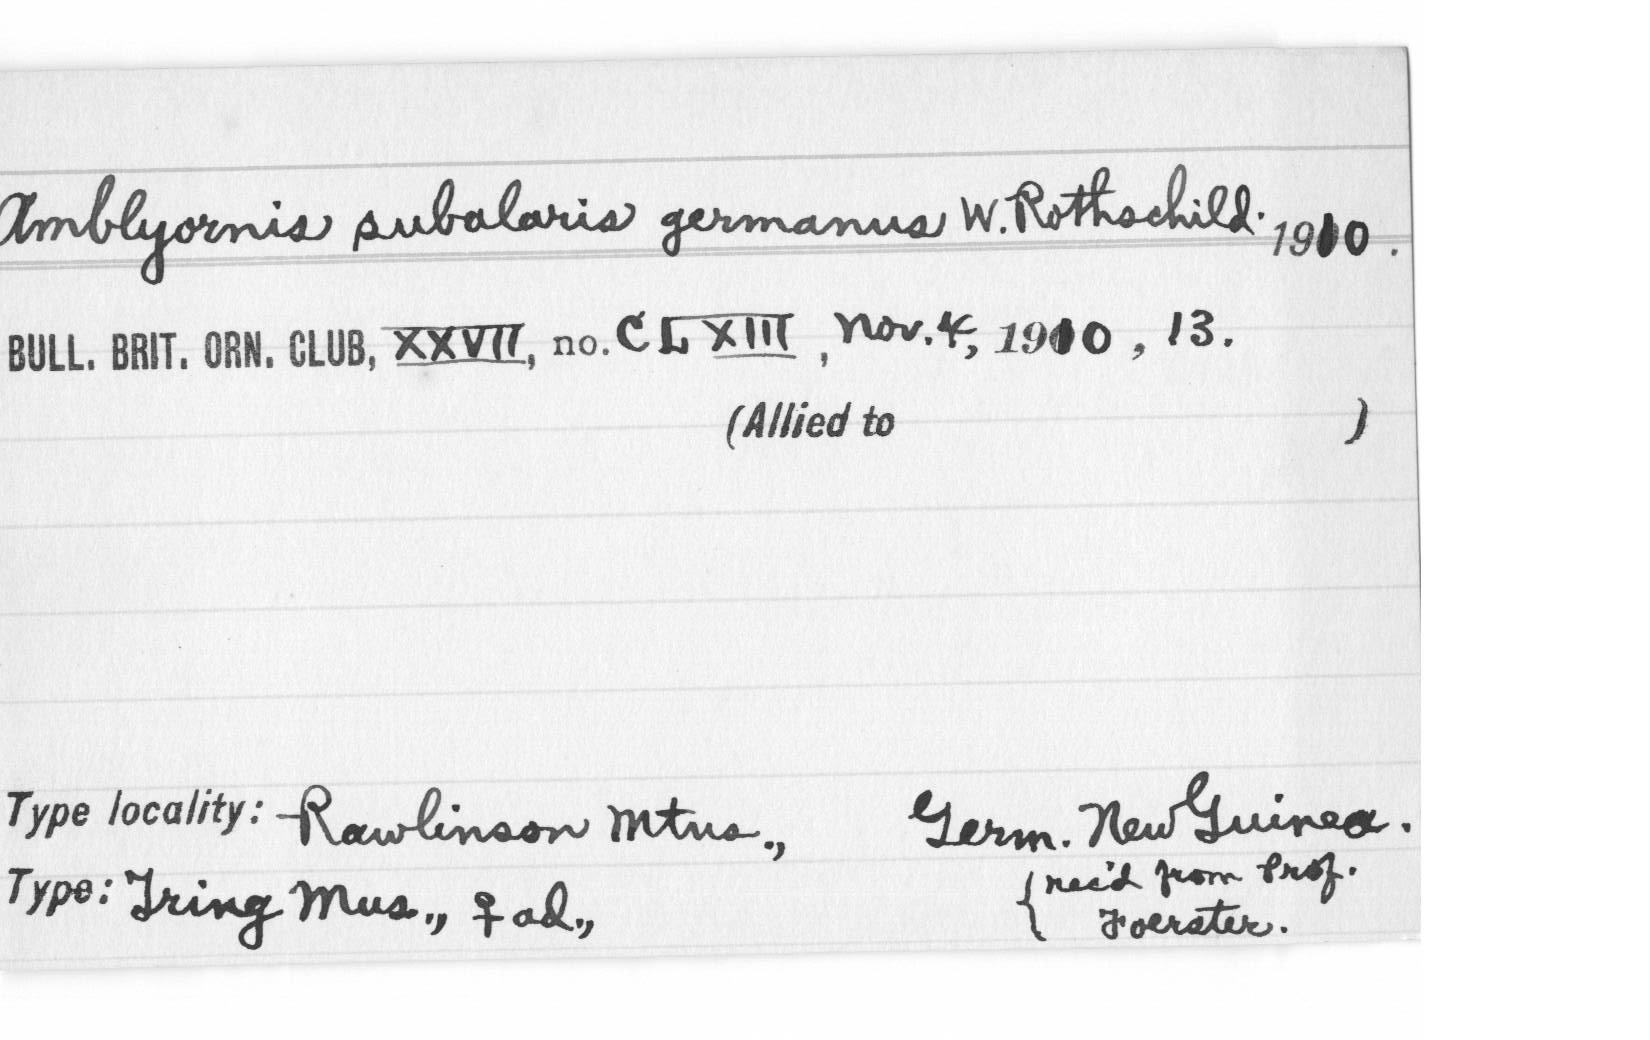 Amblyornis subalaris germanus W. Rothschild. 1910.
BULL. BRIT. ORN. CLUB, XXVII, no. CLXIII, Nov. 4, 1910, 13.
(Allied to )
Type locality: Rawlinson Mtns., Germ. New Guinea.
Type: Tring Mus., ♀ ad., {rec'd from Prof.
Foerster.